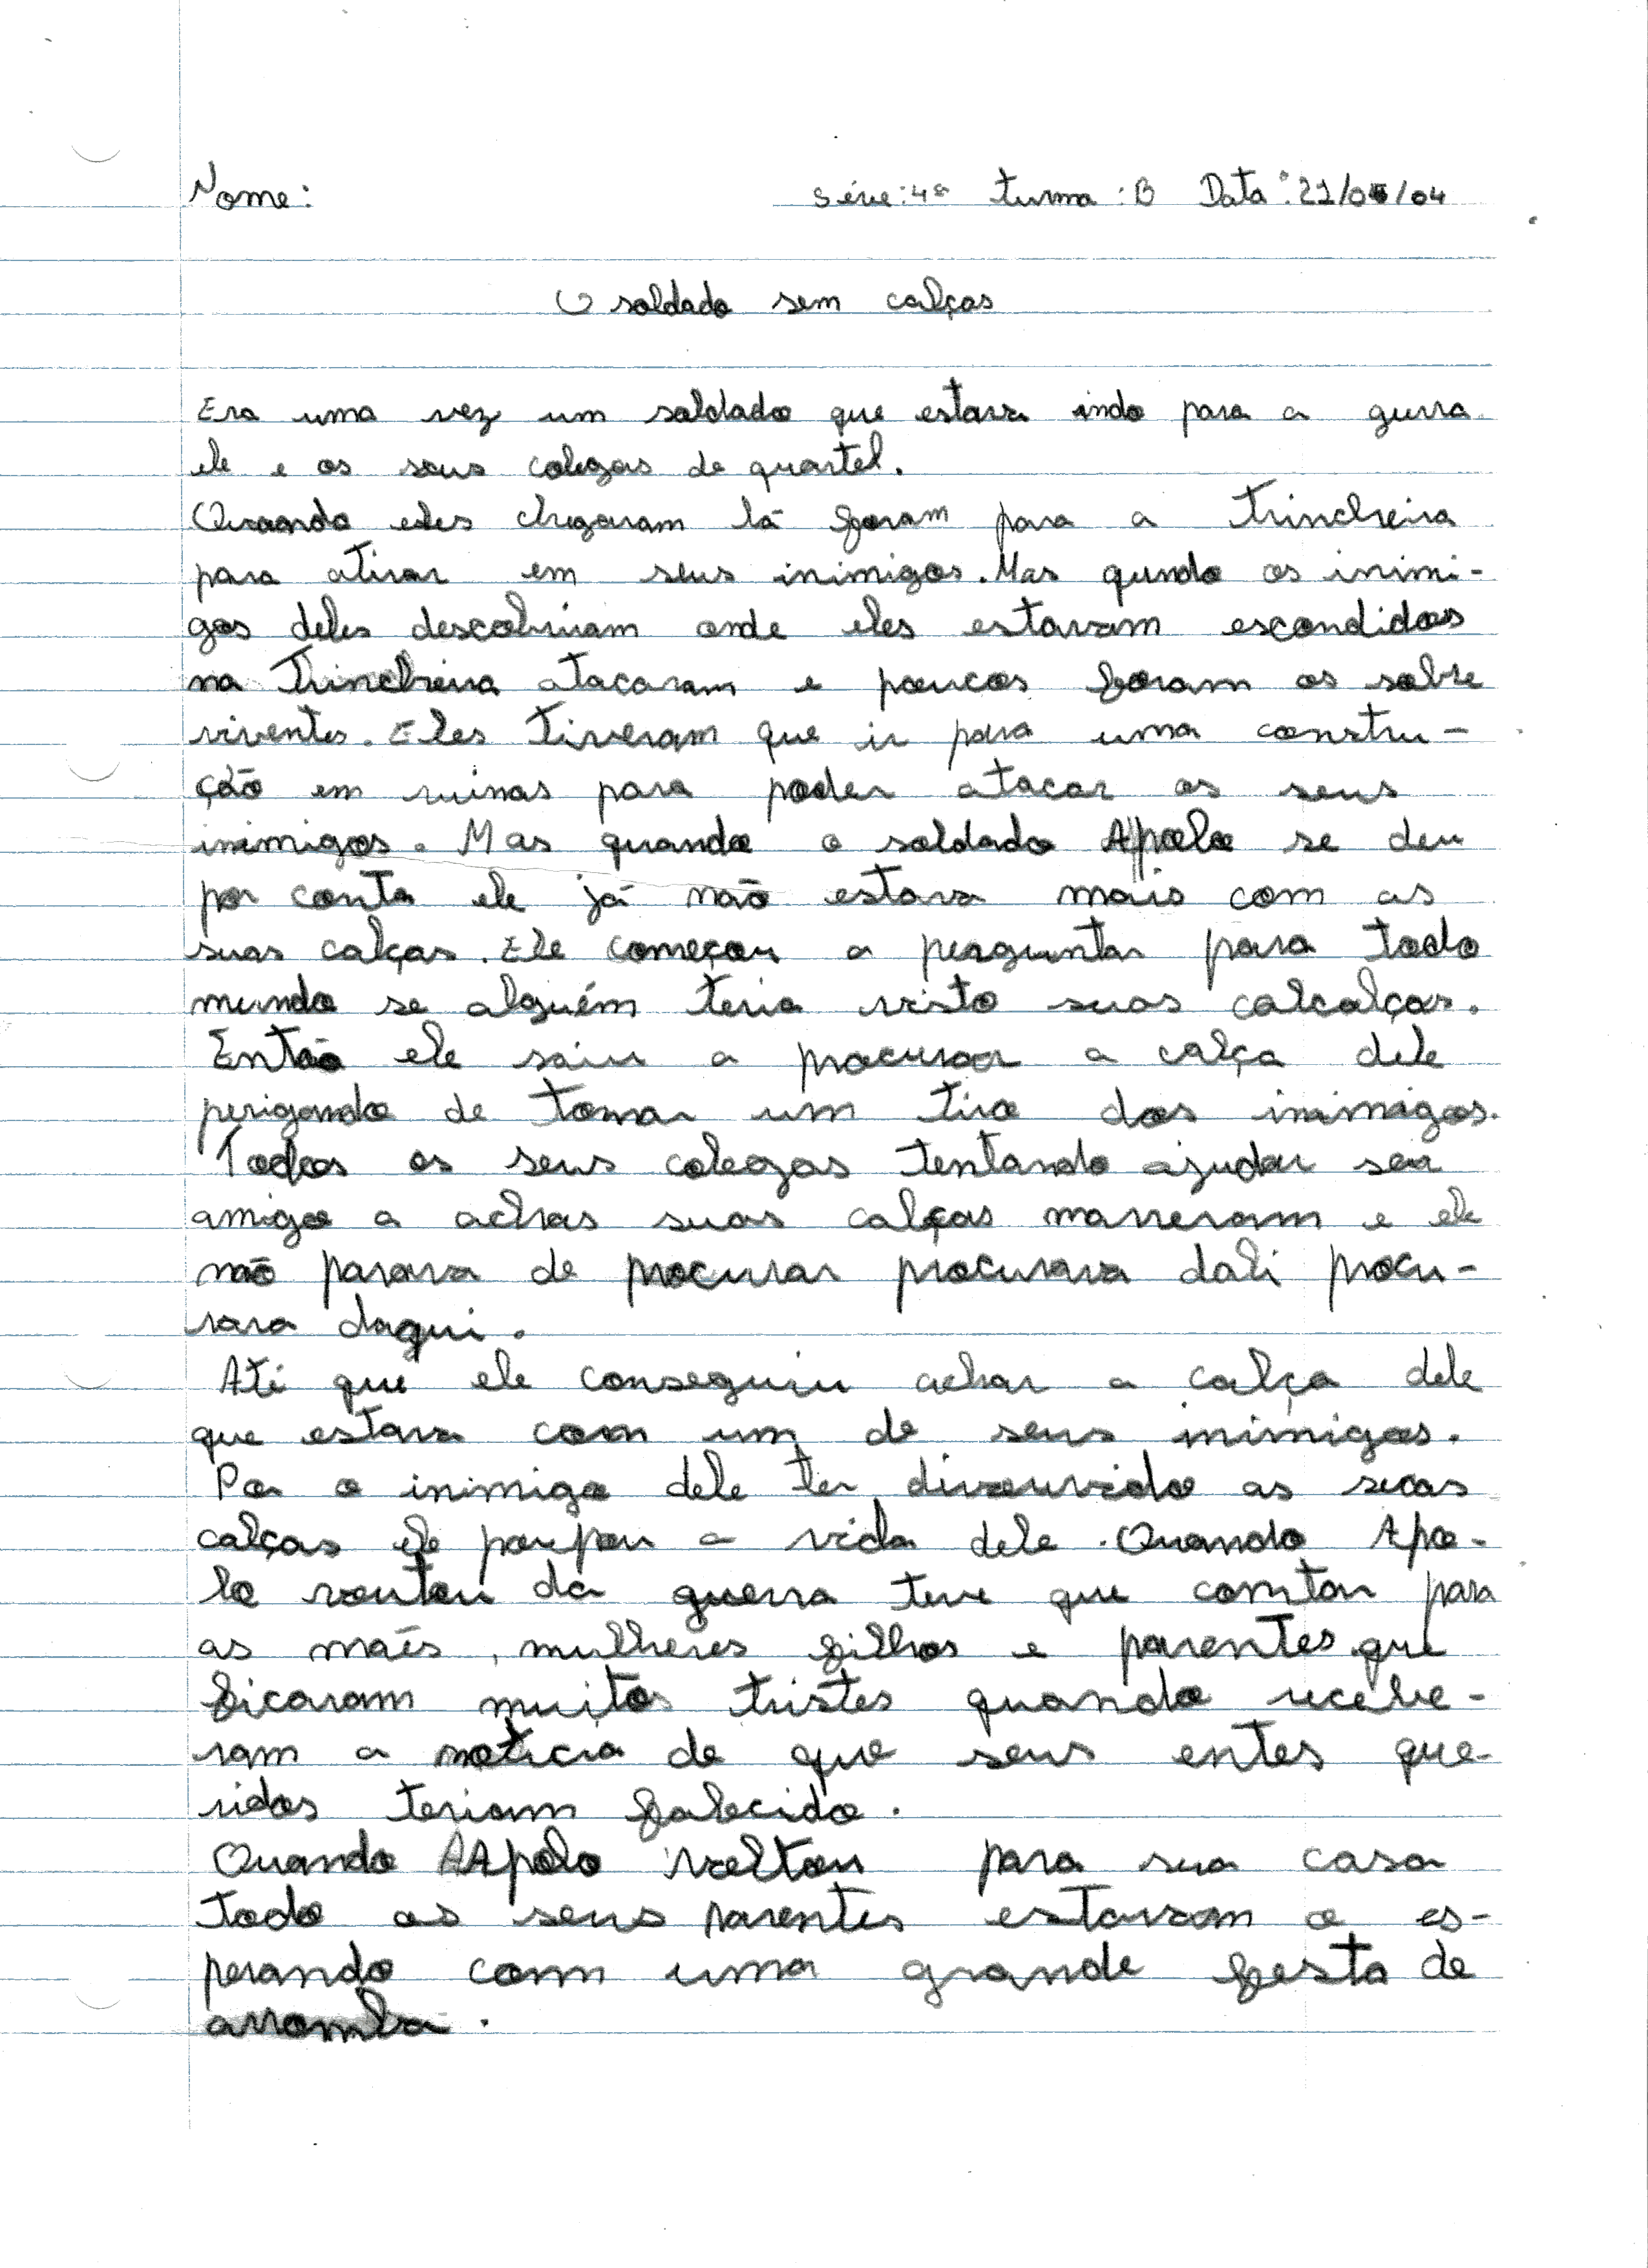 Nome: Série: 4ª turma: B Data: 21/05/04
O soldado sem calças
Era uma vez um soldado que estava indo para a gerra
ele e os seus colegas de quartel.
Quando eles chegaram lá foram para a trincheira
para atirar em seus inimigos. Mas qundo os inimi-
gos deles descobriram onde eles estavam escondidos
na trincheira atacaram e poucos foram os sobre
viventes. Eles tiveram que ir para uma constru-
ção em ruinas para poder atacar os seus
inimigos. Mas quando o soldado Apolo se deu
por conta ele já não estava mais com as
suas calças. Ele começou a perguntar para todo
mundo se alguém teria visto suas calcalças.
Então ele saiu a procurar a calça dele
perigando de tomar um tiro dos inimigos.
Todos os seus colegas tentando ajudar seu
amigo a achar suas calças morreram e ele
não parava de procurar procurava dali procu-
rava daqui.
Até que ele conseguiu achar a calça dele
que estava com um de seus inimigos.
Por o inimigo dele ter as suas
calças ele poupou a vida dele. Quando Apo-
lo voutou da guerra teve que contar para
as maẽs, mulheres filhos e parentes que
ficaram muitos tristes quando recebe-
ram a noticia de que seus entes que-
ridos teriam falecido.
Quando Apolo voltou para sua casa
todo os seus parentes estavam o es-
perando com uma grande festa de
arromba.